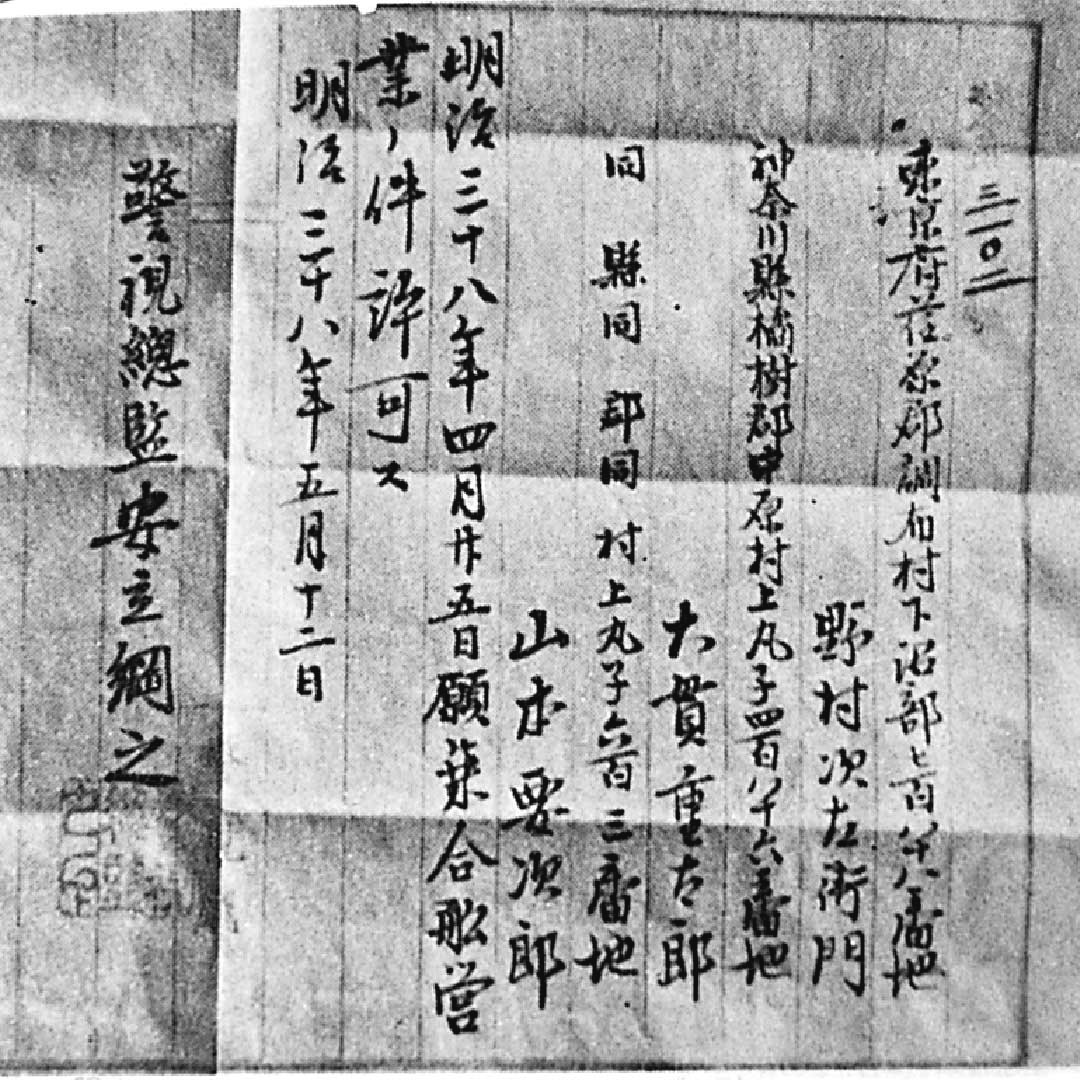 三一〇二
東京府荏原郡調布村下沼部七百八十八番地
野村次左衛門
神奈川縣橘樹郡中原村上丸子四百八十六番地
大貫重太郎
同縣同郡同村上丸子六百三番地
山本要次郎
明治三十八年四月廿五日願乗合舩営
業ノ件許可ス
明治三十八年五月十二日
警視總監安立綱之